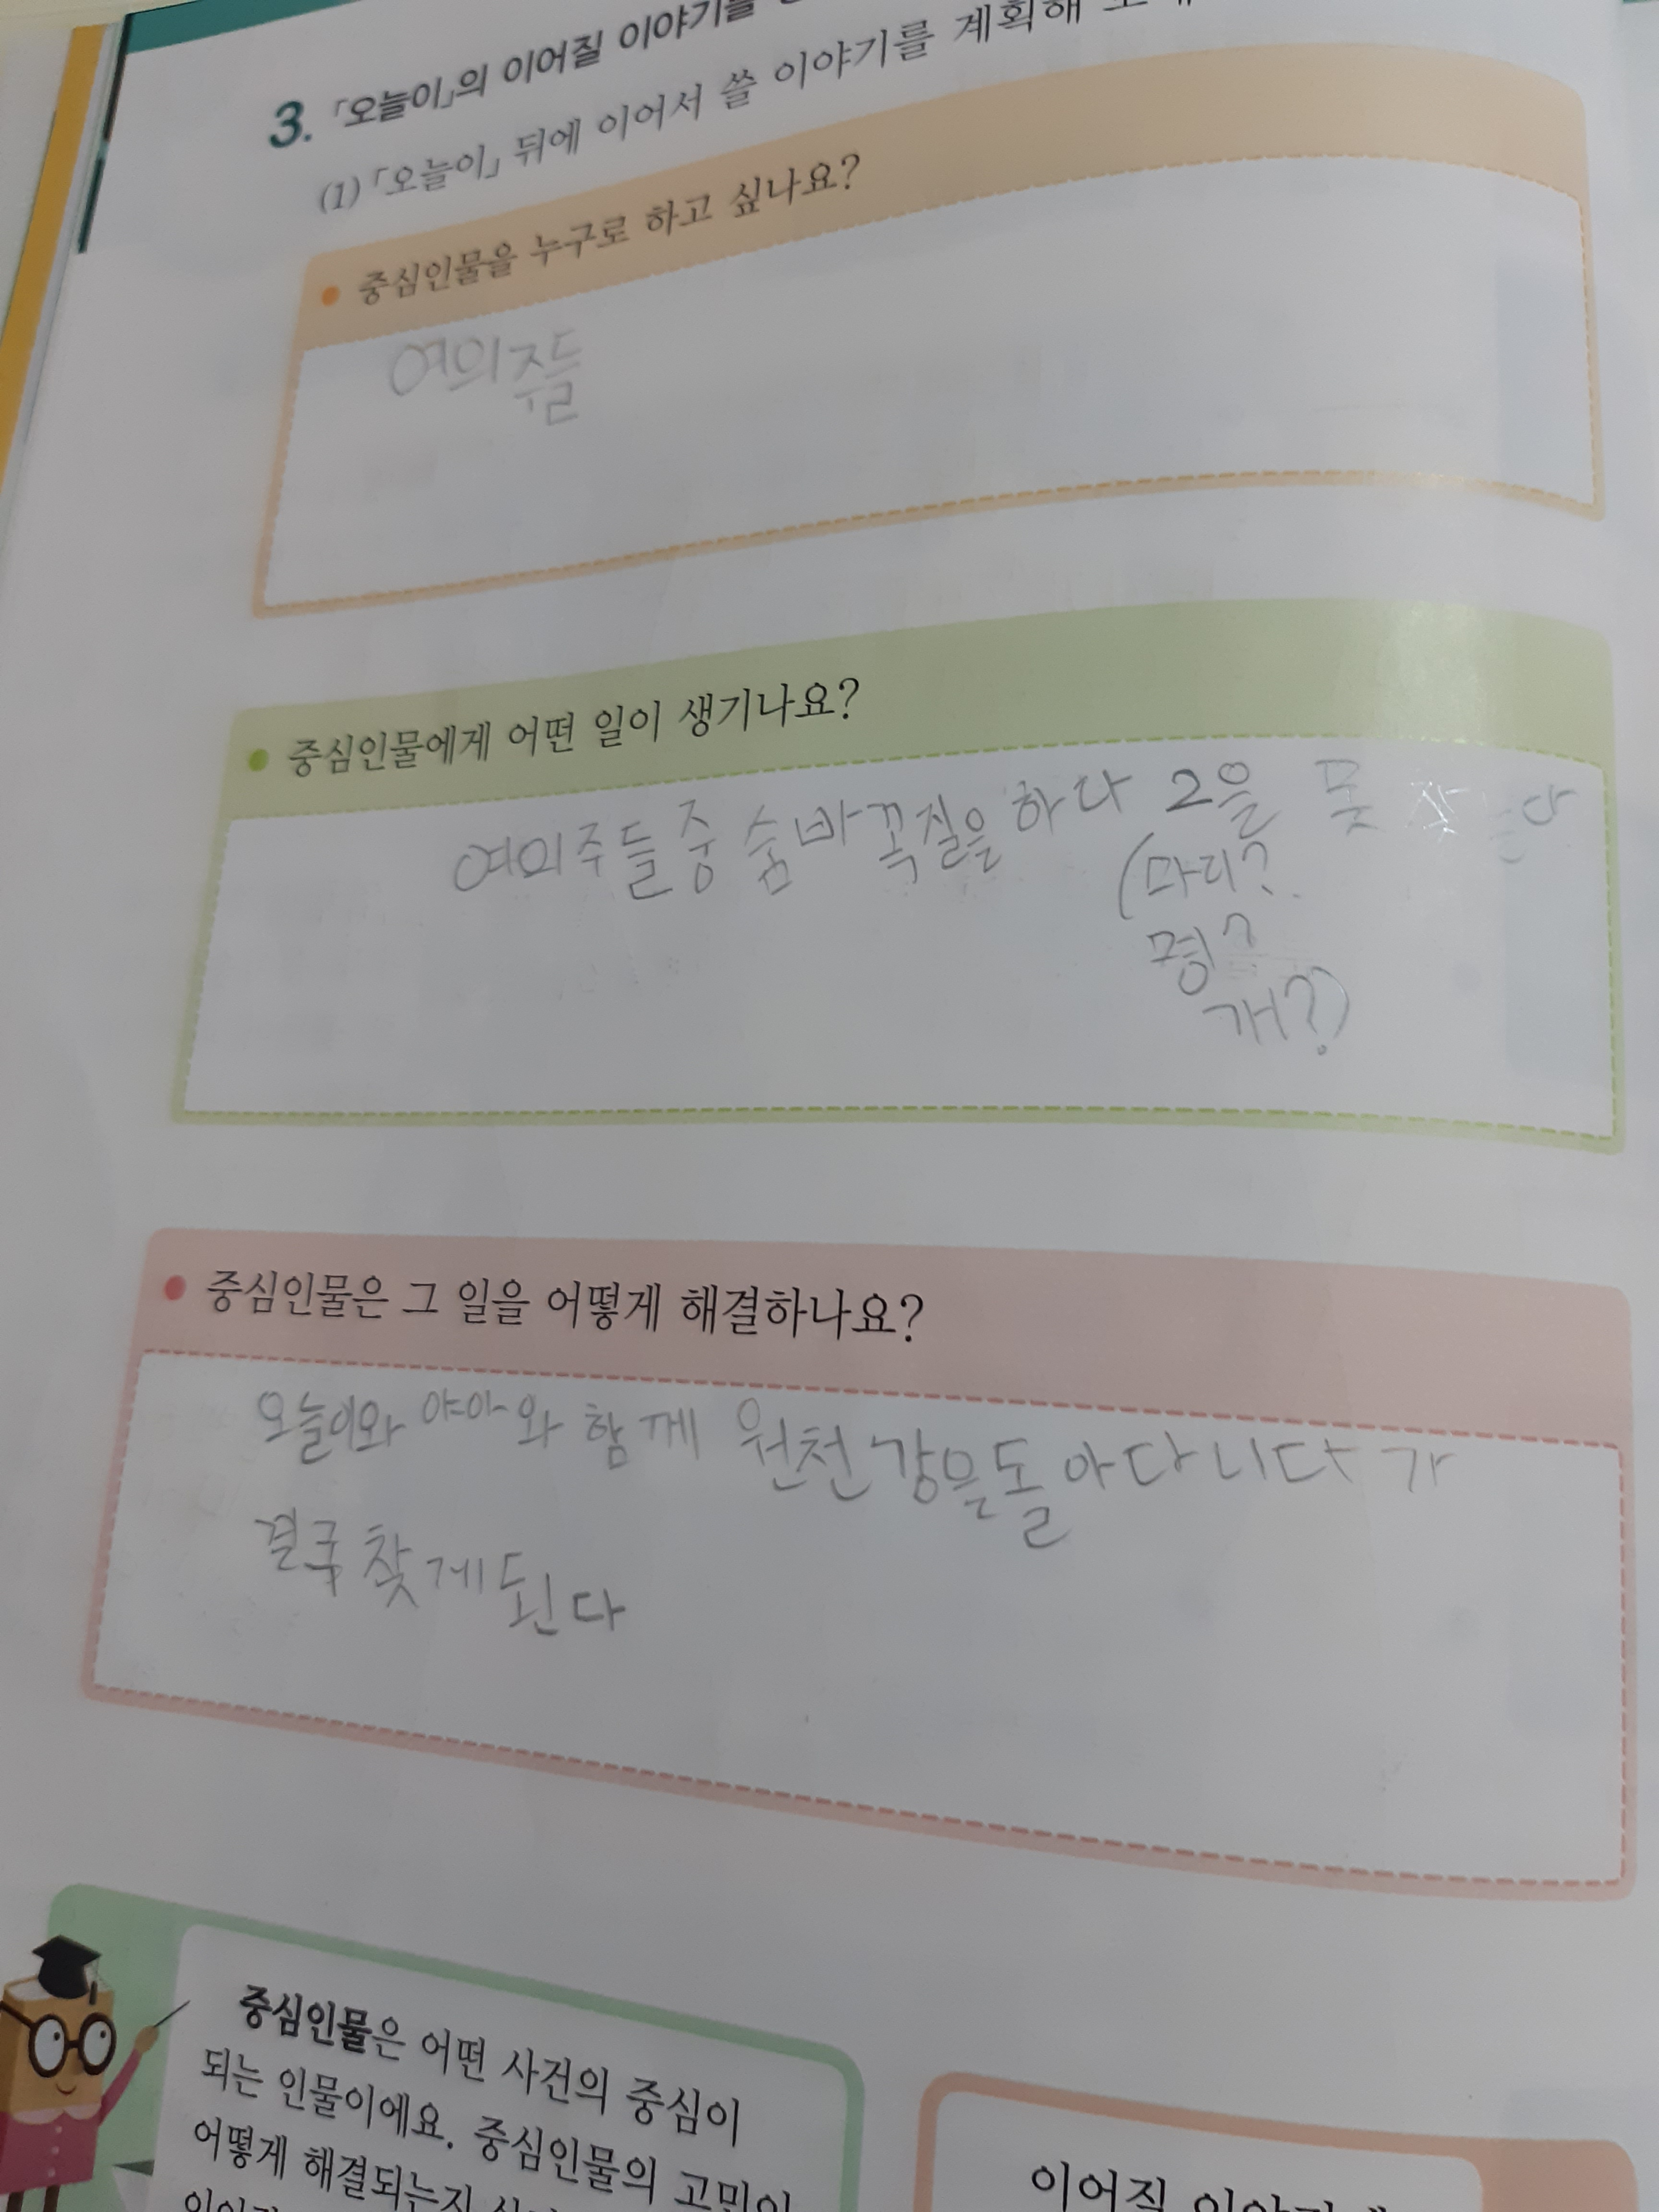 3. 「오늘이」의 이어질 이야기를
(1) 「오늘이」 뒤에 이어서 쓸 이야기를 계획해
• 중심인물을 누구로 하고 싶나요?
여의주들
• 중심인물에게 어떤 일이 생기나요?
여의주들중 숨바꼭질을 하다 2을 못 찾는다
(마리?
명?
개?)
• 중심인물은 그 일을 어떻게 해결하나요?
오늘이와 야아와 함께 원천강을돌아다니다가
결국 찾게된다
중심인물은 어떤 사건의 중심이
되는 인물이에요. 중심인물의 고민이
어떻게 해결되는지
이어질